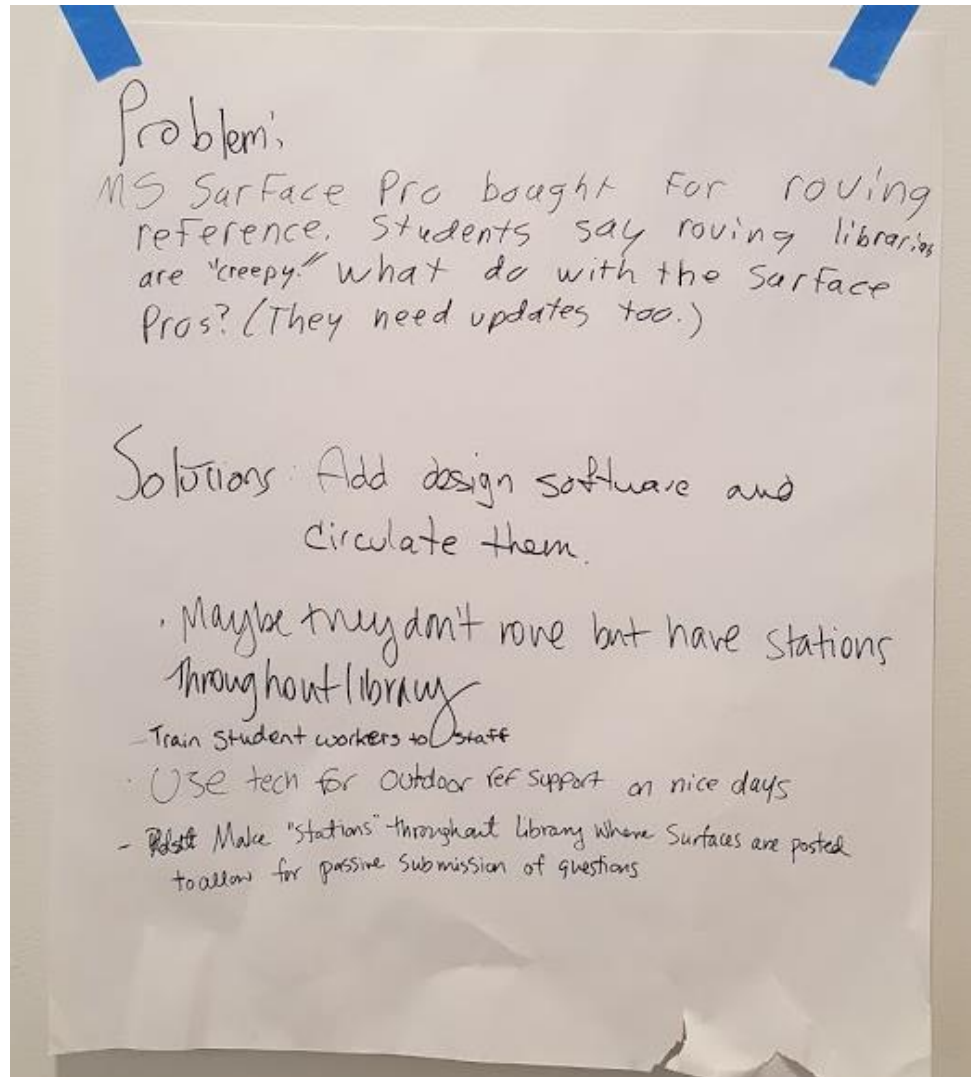 Problem:
MS Surface Pro bought for roving
reference. Students say roving libraries
are "creepy." What do with the Surface
Pros? (They need updates too.)
Solutions: Add design software and
circulate them.
· Maybe they don't rove but have stations
throughout library
- Train student workers to staff
· Use tech for outdoor ref support on nice days
- Make "stations" throughout library where Surfaces are posted
to allow for passive submission of questions